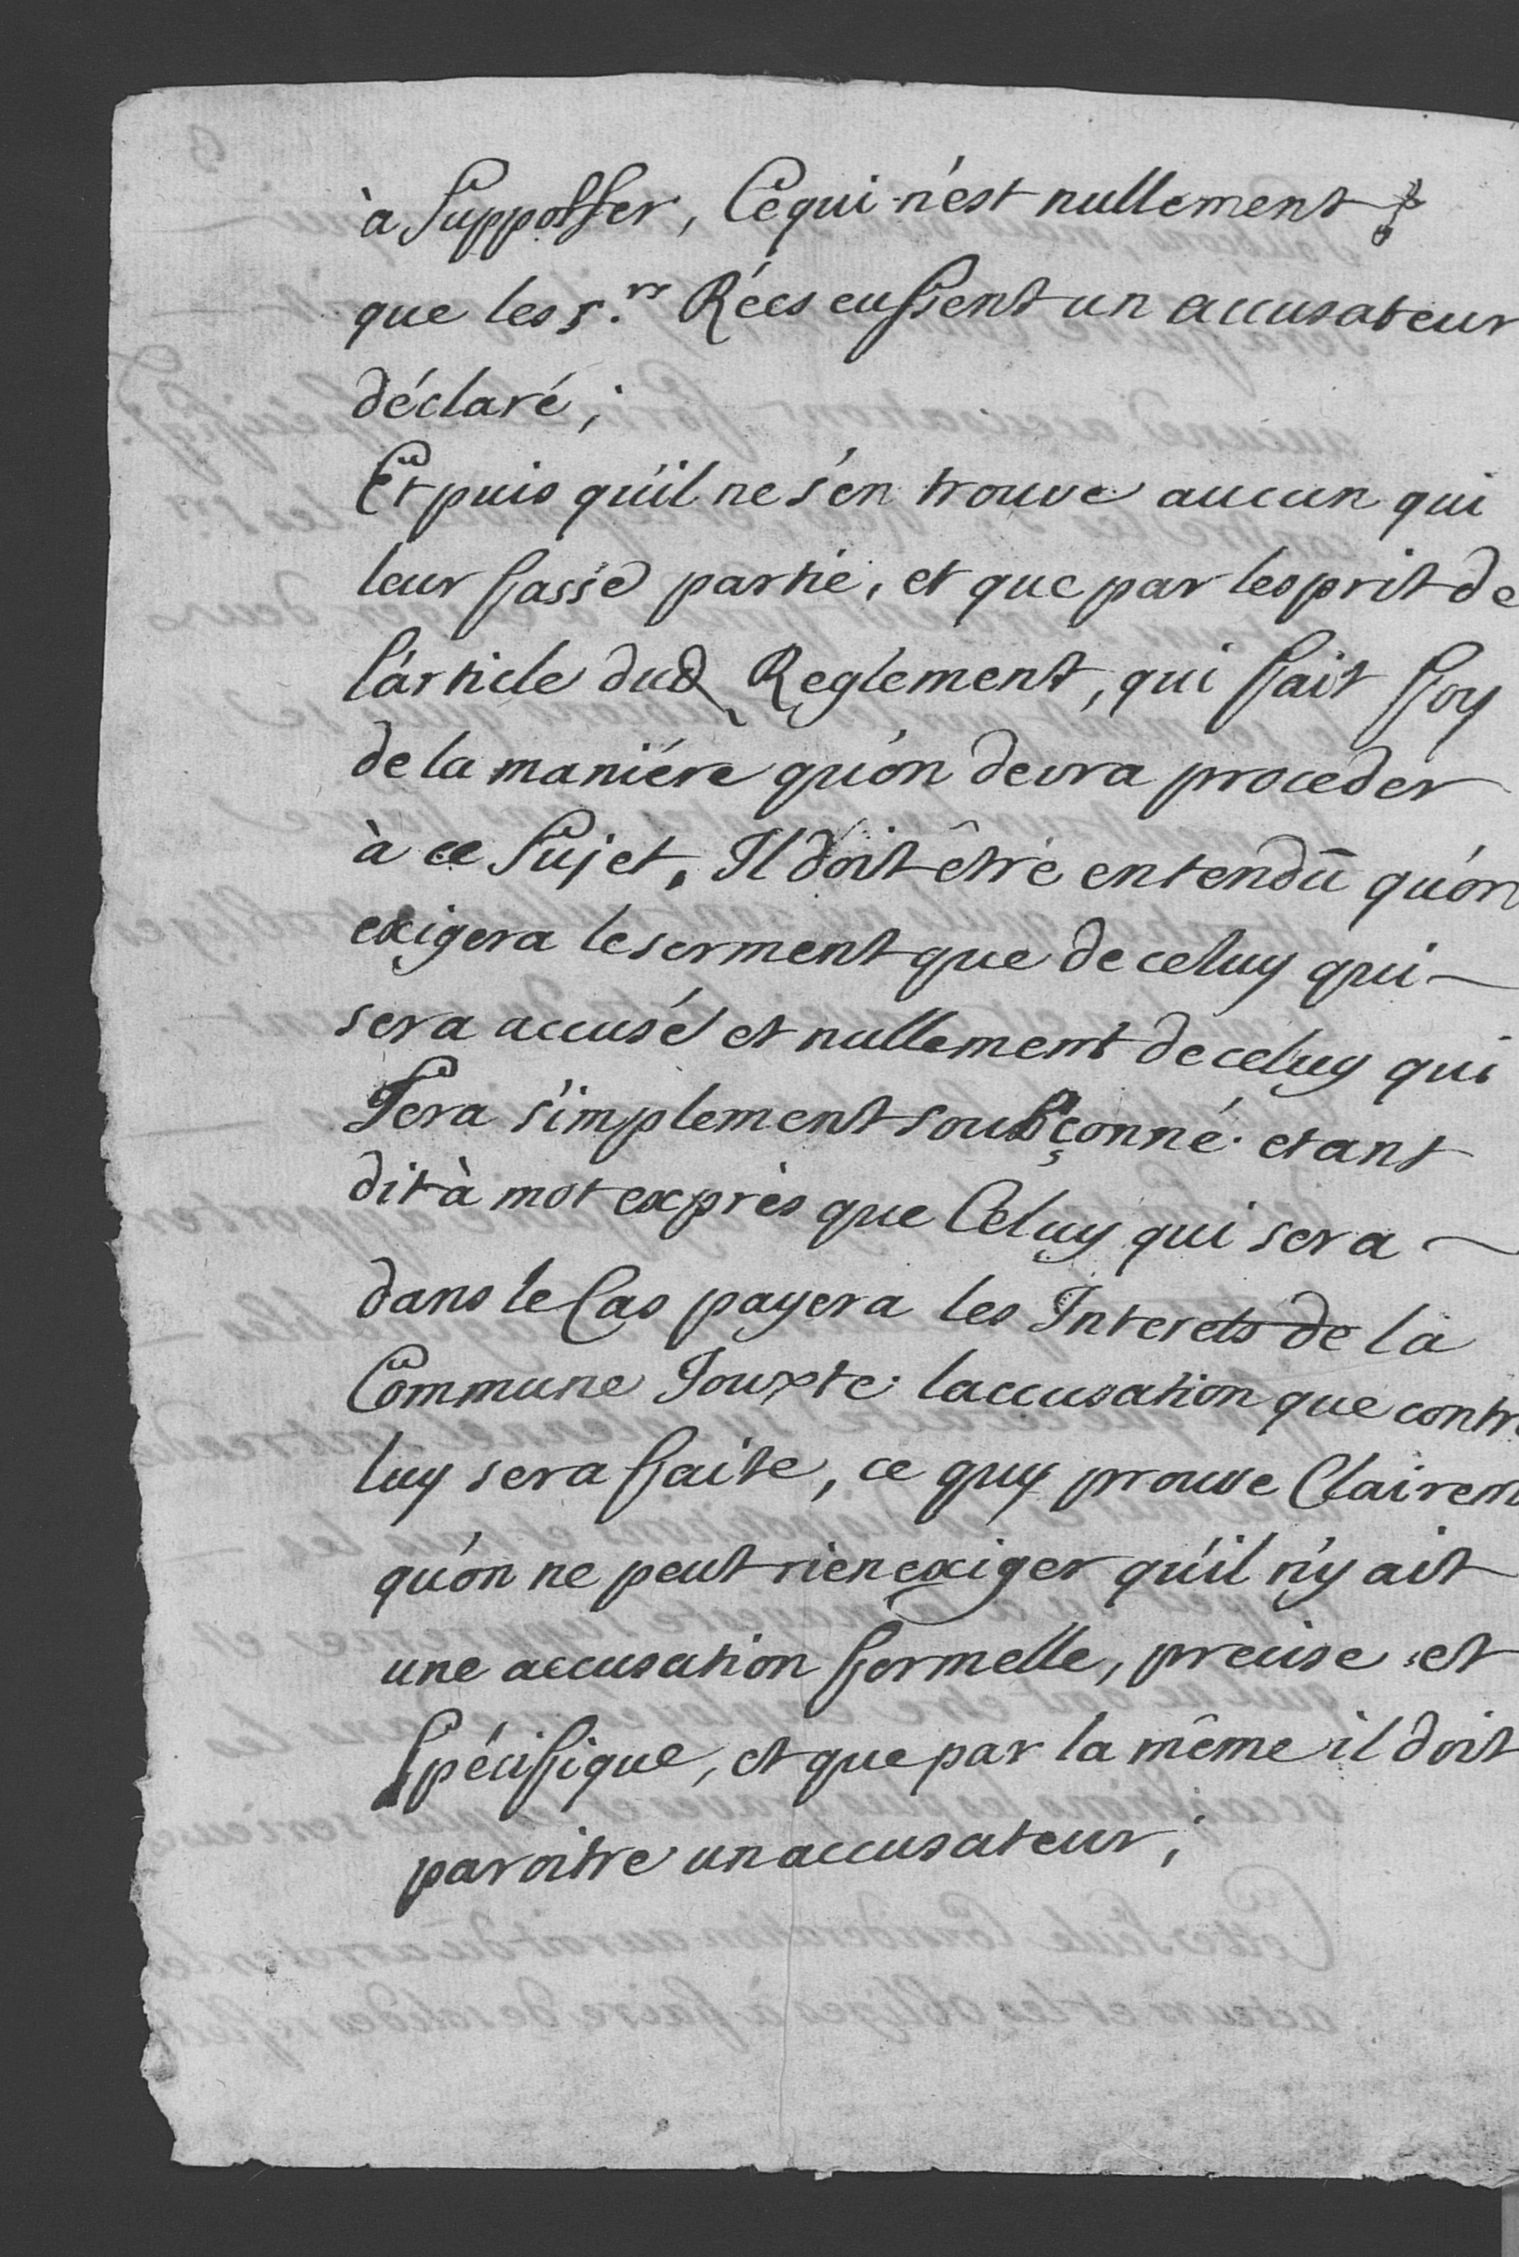 à supposser, Ce qui n'est nullement
que les s.rs Rées eussent un accusateur
déclaré;
Et puis qu'il ne s'en trouve aucun qui
leur fasse partie, et que par lesprit de
l'article dud Reglement, qui fait foy
de la maniére qu'on devra proceder
à ce sujet, Il doit être entendû qu'on
exigera le serment que de celuy qui
sera accusé et nullement de celuy qui
sera simplement soubçonné. etant
dit à mot exprès que Celuy qui sera
dans le Cas payera les Interets de la
Commune Jouxte laccusation que contre
luy sera faite, ce quy prouve Clairem
qu'on ne peut rien exiger qu'il n'y ait
une accusation formelle, precise et
spécifique, et que par la même il doit
paroitre un accusateur;